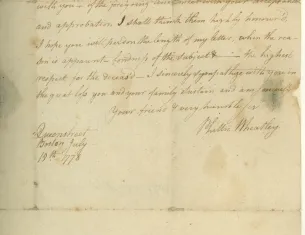 with you &
and approbation I shall think them highly honour'd
I hope you will pardon the length of my letter, when the rea-
son is apparent fondness of the Subject & the highest
respect for the deceas'd I sincerely sympathize with you in
the great loss you and your family Sustain and am
Your friend & very humble
Phillis Wheatley
Queenstreet
Boston July
1778